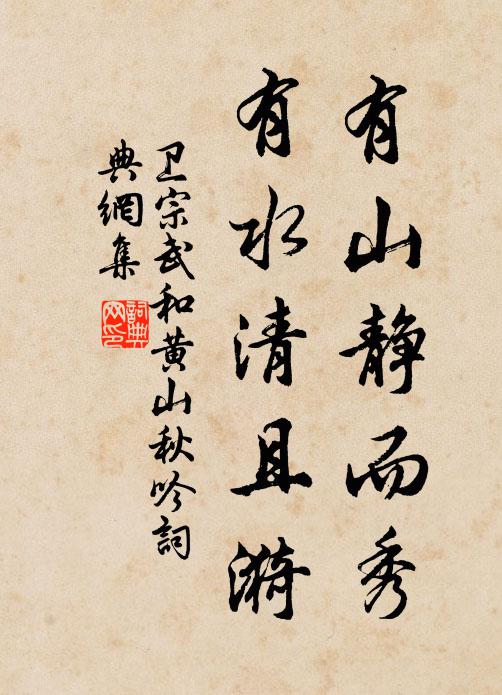 有山静而秀
有水清且漪
卫宗武和黄山秋吟詞
典網集
詞典网印